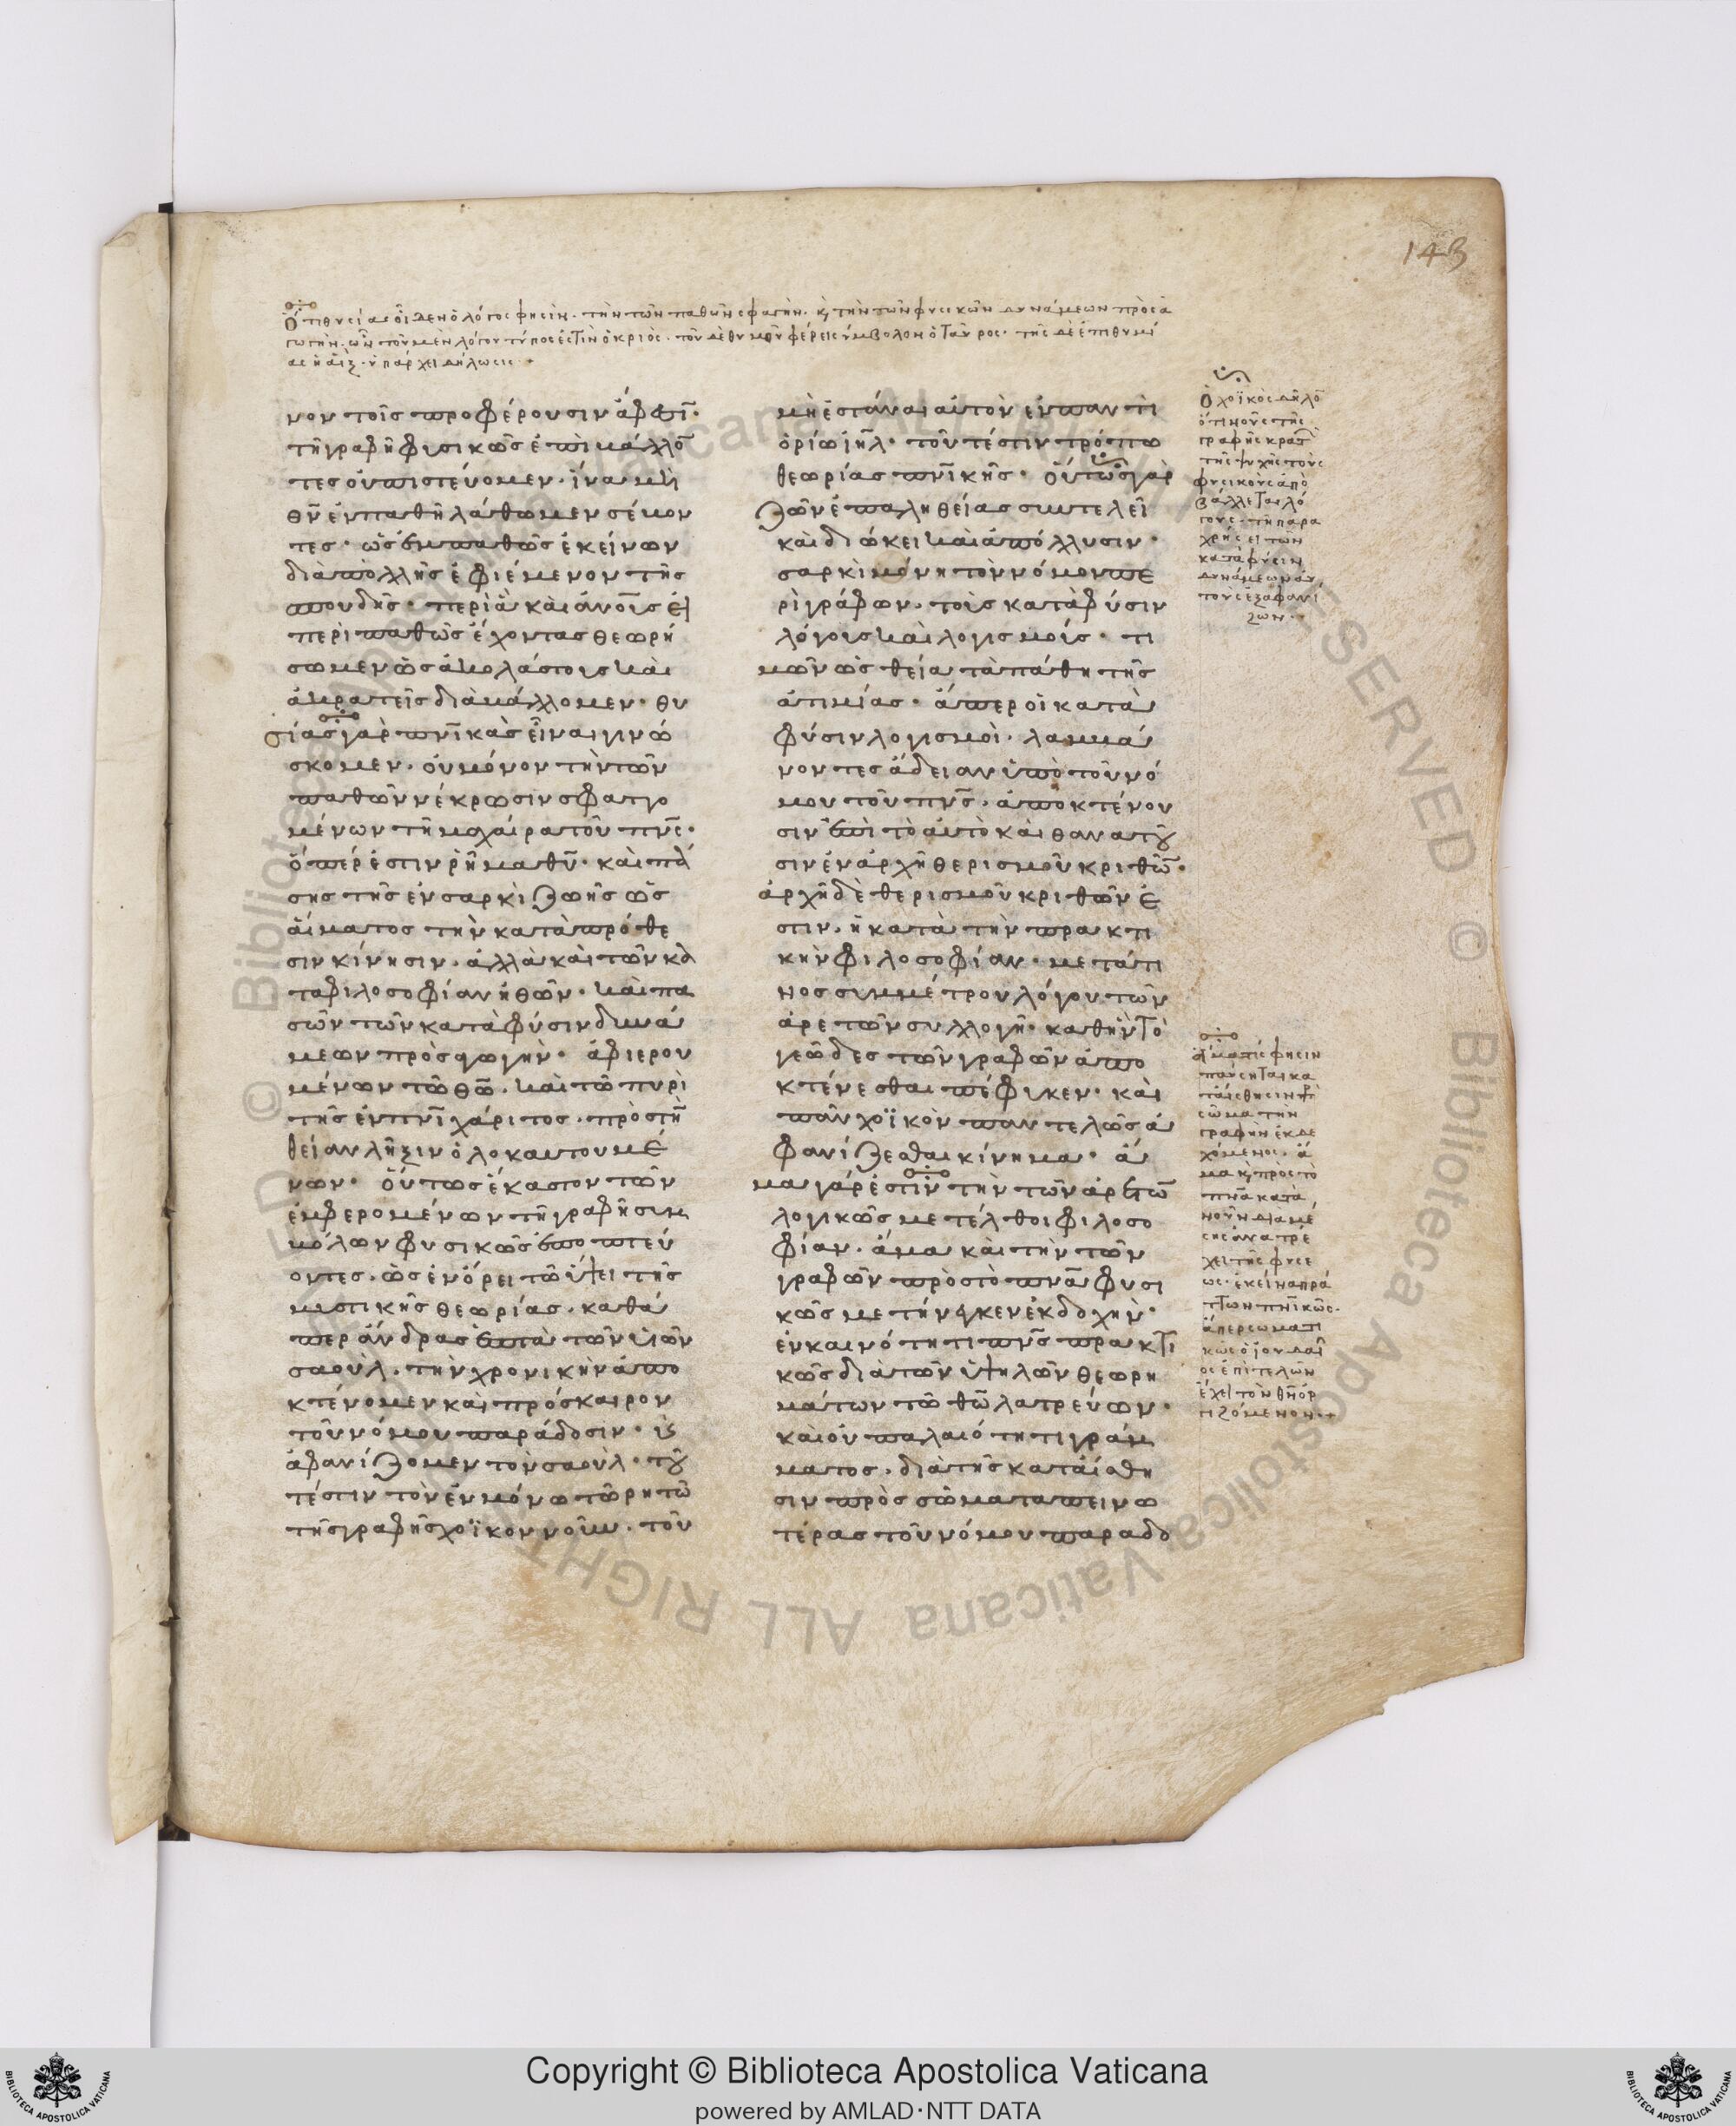 143
Ὅτι θυσίας οἶδεν ὁ λόγος φησὶν· τὴν τῶν παθῶν σφαγήν· κ(αὶ) τὴν τῶν φυσικῶν δυνάμεων προσα
γωγήν· ὧν τοῦ μὲν λόγου τύπος ἐστὶν ὁ κριός· τοῦ δὲ θυμοῦ φέρει σύμβολον ὁ ταῦρος· τῆς δὲ ἐπιθυμί
ας ἡ αἲξ· ὑπάρχει δήλωσις +
νον τοῖς προφέρουσιν
τῆ γραφῆ φυσικῶς ἐπιβάλλο
τες οὐ πιστεύομεν· ἵνα μὴ
θν ἐμπαθῆ λάθωμεν σέβον
τες· ὡς ἐμπαθῶς ἐκείνων
διὰ πολλῆς ἐφιέμενον τῆς
σπουδῆς· περὶ ἃ καὶ ἀνοις
περιπαθῶς ἔχοντας θεωρή
σωμεν ὡς ἀκολάστοις καὶ
ἀκρατεῖς διαβάλλομεν· θυ
σίας γὰρ πνικὰς εἶναι γινώ
σκομεν· οὐ μόνον τὴν τῶν
παθῶν νέκρωσιν σφαγιο
μένων τῆ μαχαίρα τοῦ πνς·
ὅπέρ ἐστιν ῥῆμα θυ· καὶ πά
σης τῆς ἐν σαρκὶ ζωῆς ὡς
αἵματος τὴν κατὰ πρόθε
σιν κίνησιν· ἀλλὰ καὶ τῶν κα
τα φιλοσοφίαν ἠθῶν· καὶ πα
σῶν τῶν κατὰ φύσιν δυνά
μεων προσαγωγὴν· ἀφιερου
μένων τῶ θω· καὶ τῶ πυρὶ
τῆς ἐν πνι χάριτος· πρὸς τὴ
θείαν λῆξιν ὁλοκαυτουμέ
νων· οὕτως ἕκαστον τῶν
ἐμφερομένων τῆ γραφῆ συμ
βόλων φυσικῶς ἐποπτεύ
οντες· ὡς ἐν ὄρει τῶ ὕψει τῆς
μυστικῆς θεωρίας· καθά
περ ἄνδρας ἑπτὰ τῶν υἱῶν
σαοὺλ· τὴν χρονικὴν ἀπο
κτένομεν καὶ πρόσκαιρον
τοῦ νόμου παράδοσιν· κ(αὶ)
ἀφανίζομεν τὸν σαοὺλ· του
τέστιν τὸν ἐν μόνω τῶ ῥητῶ
τῆς γραφῆς χοϊκὸν νοῦν· τοῦ
μὴ ἑστάναι αὐτὸν ἐν παντὶ
ὁρίω ιηλ· τουτέστιν τρόπω
θεωρίας πνικῆς· οὕτως γὰρ
ζῶν ἐπ' ἀληθείας συντελεῖ
καὶ διώκει καὶ ἀπόλλυσιν·
σαρκὶ μόνη τὸν νόμον πε
ριγράφων· τοὺς κατὰ φύσιν
λόγους καὶ λογισμούς· τι
μῶν ὡς θεῖα τὰ πάθη τῆς
ἀτιμίας· ἅπερ οἱ κατὰ
φύσιν λογισμοὶ· λαμβά
νοντες ἄδειαν ὑπὸ τοῦ νό
μου τοῦ πνς· ἀποκτένου
σιν ἐπὶ τὸ αὐτὸ καὶ θανατου
σιν ἐν ἀρχῆ θερισμοῦ κριθῶ·
ἀρχὴ δὲ θερισμοῦ κριθῶν ἐ
στιν· ἡ κατὰ τὴν πρακτι
κὴν φιλοσοφίαν· μετά τι
νος συμμέτρου λόγου τῶν
ἀρετῶν συλλογή· καθ' ἣν τὸ
γεῶδες τῶν γραφῶν ἀπο
κτένεσθαι πέφυκεν· καὶ
πᾶν χοϊκὸν παντελῶς ἀ
φανίζεσθαι κίνημα· ἅ
μα γάρ ἐστιν τὴν τῶν ἀρετῶ
λογικῶς μετέλθοι φιλοσο
φίαν· ἅμα καὶ τὴν τῶν
γραφῶν πρὸς τὸ πνα φυσι
κῶς μετήνεγκεν ἐκδοχήν·
ἐν καινότητι πνς πρακτι
κῶς διὰ τῶν ὑψηλῶν θεωρη
μάτων τῶ θω λατρεύων·
καὶ οὐ παλαιότητι γράμ
ματος· διὰ τῆς κατ' αἴσθη
σιν πρὸς σῶμα ταπεινω
τέρας τοῦ νόμου παραδο
Ὁ χοϊκὸς δηλο
ὅτι νοῦς τῆς
γραφῆς κρατ
τῆς ψυχῆς τοὺς
φυσικοὺς ἀπο
βάλλεται λό
γους· τῆ παρα
χρήσει τῶν
κατὰ φύσιν
δυνάμεων αὐ
τοὺς ἐξαφανί
ζων +
παύσηται κα
τ' αἴσθησιν πρὸς
σῶμα τὴν
γραφὴν ἐκδε
χόμενος· ἅ
μα κ(αὶ) πρὸς τὸ
πνα κατὰ
νοῦν διὰ μέ
σης ἀνατρέ
χει τῆς φύσε
ως· ἐκεῖνα πρά
ττων πνικῶς·
ἅπερ σωματι
κῶς ὁ ἰουδαῖ
ος ἐπιτελῶν
ἔχει τὸν θν ὀρ
γιζόμενον +
Copyright © Biblioteca Apostolica Vaticana
powered by AMLAD·NTT DATA